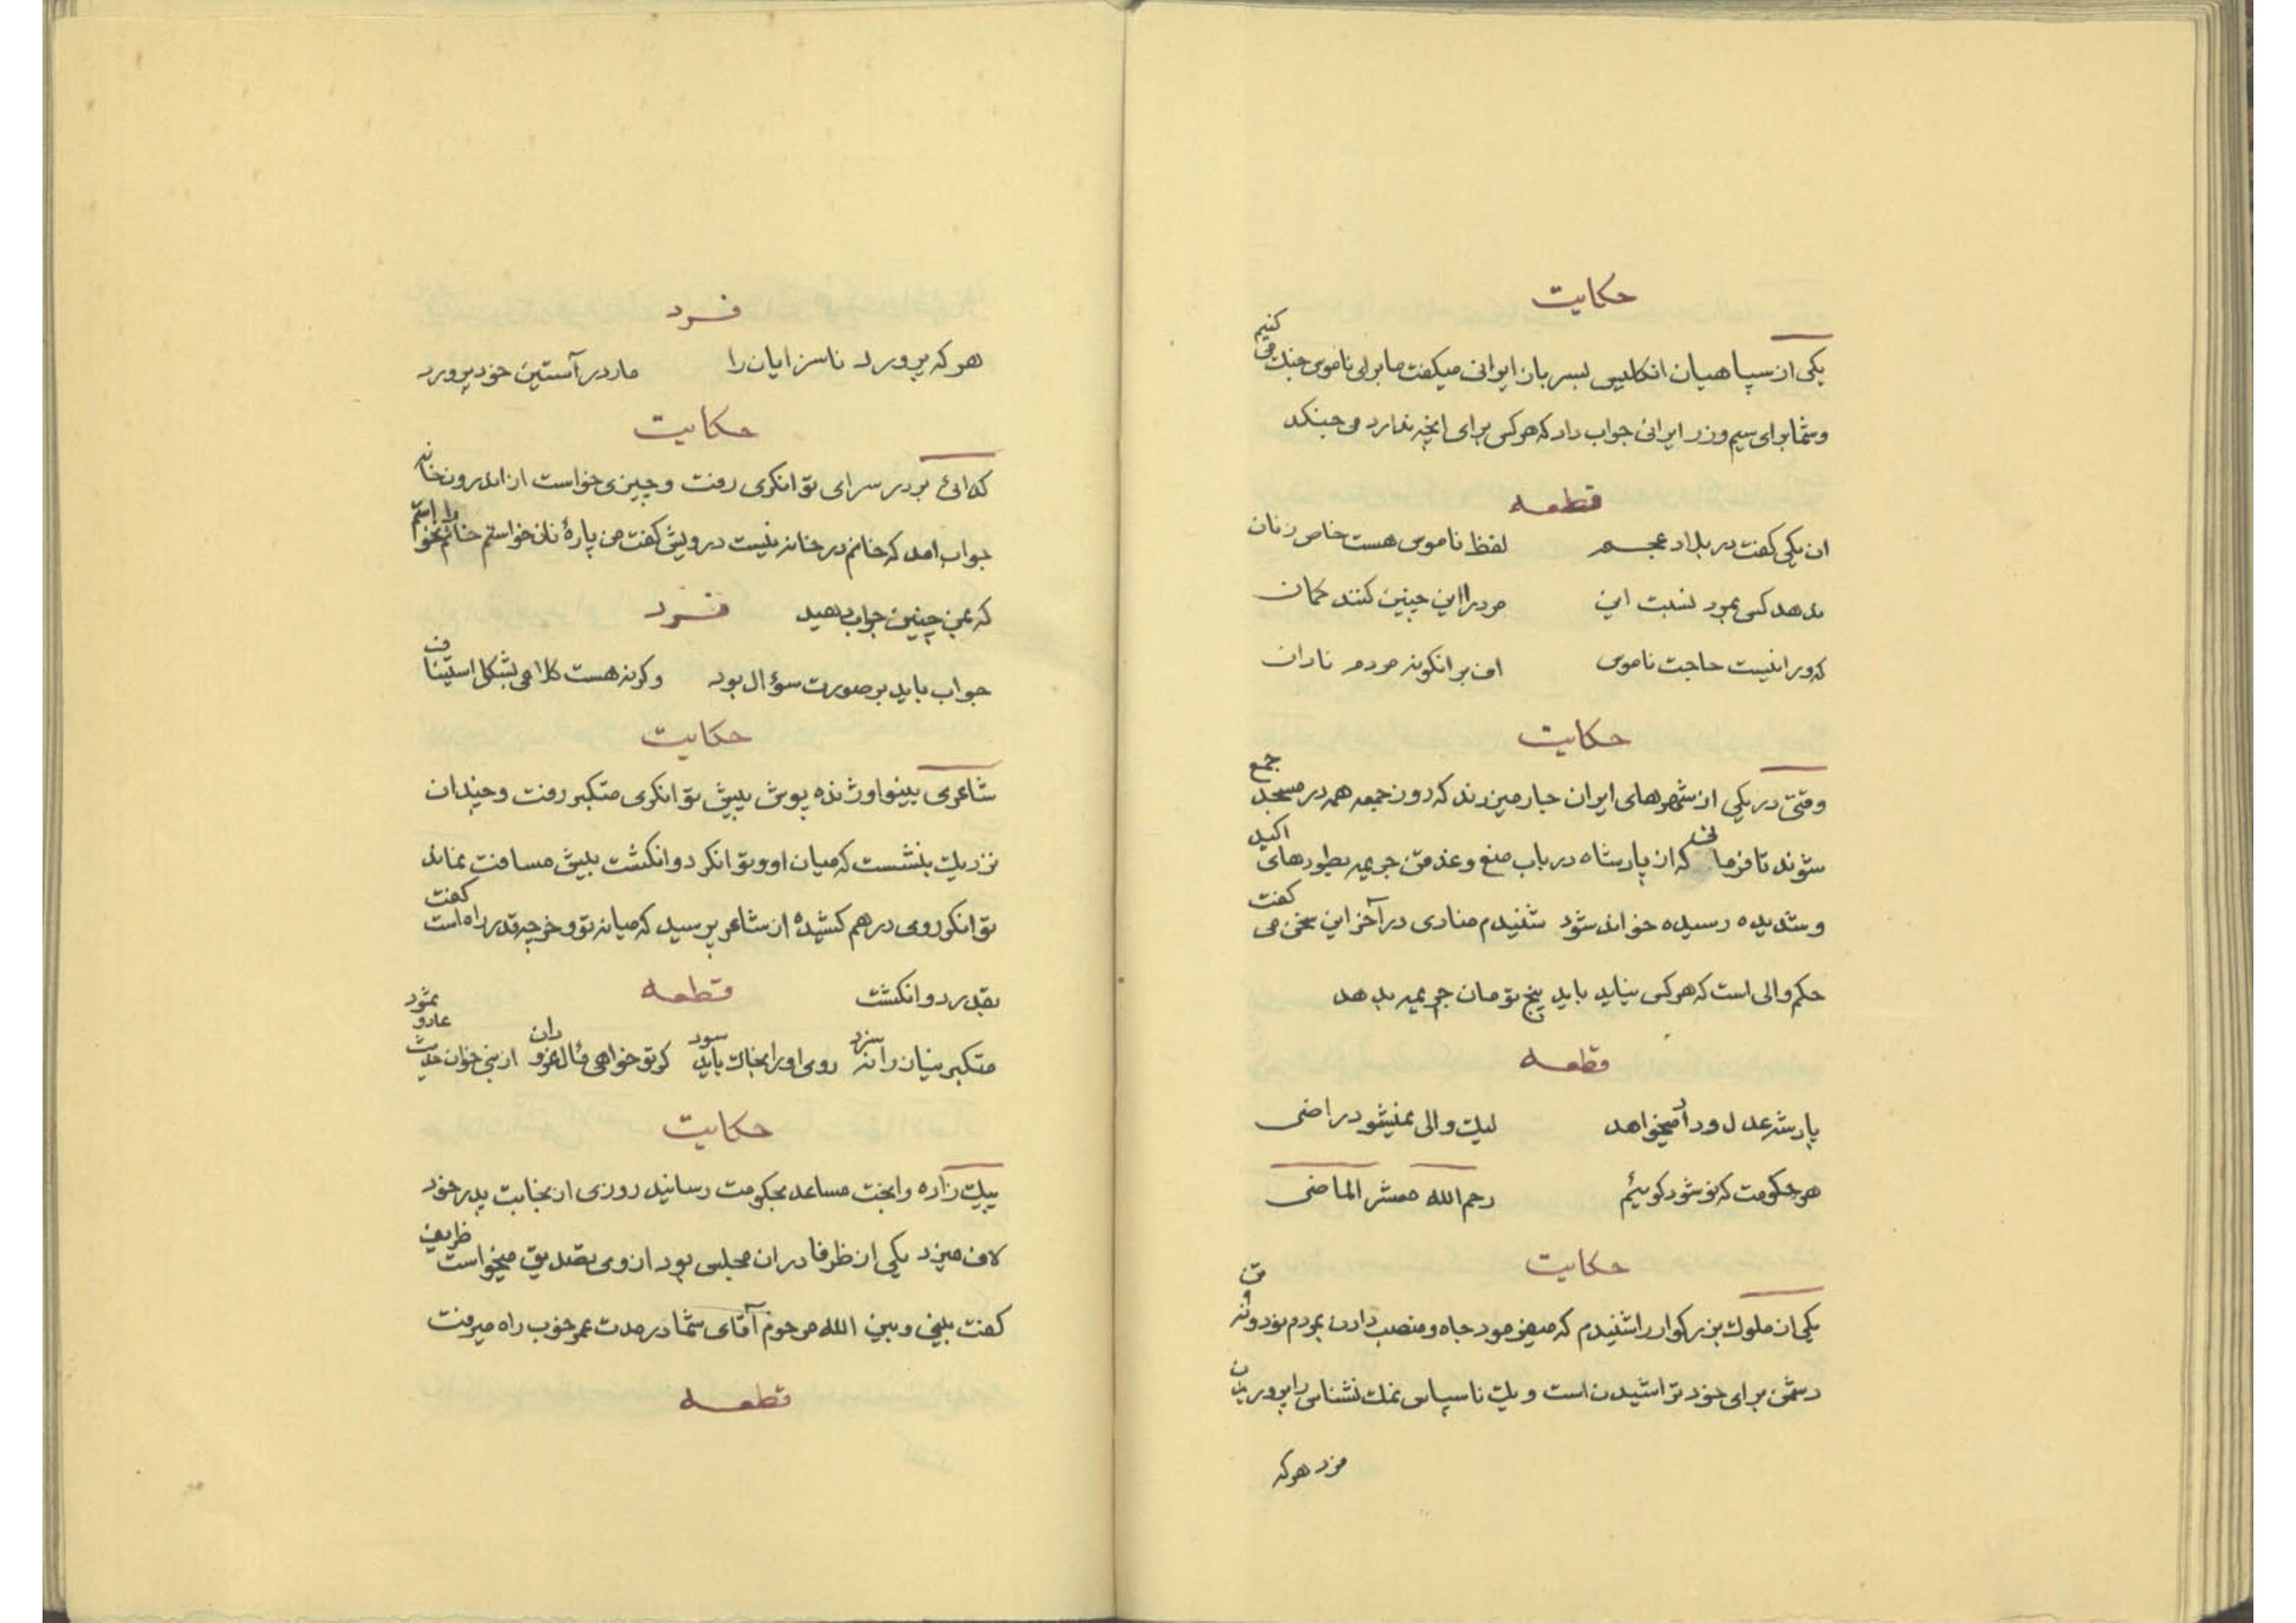 حکایت
یکی از سپاهیان انکلیس بسربازان ایرانی میکفت ما برای ناموس جنک می کنیم
و شما برای سیم و زر ایرانی جواب داد که هر کس برای انچه ندارد می جنکد
قطعه
ان یکی کفت در بلاد عجم لفظ ناموس هست خاص زنان
ندهد کس بمرد نسبت این مرد را این چنین کنند کمان
که ورا نیست حاجت ناموس اف بر انکونه مردم نادان
حکایت
وقتی در یکی از شهرهای ایران جار میزدند که روز جمعه همه در مسجد جمع
شوند تا فرمانی که از پادشاه در باب منع و غدقن جریمه بطورهای اکید
و شدیده رسیده خوانده شود شنیدم منادی در آخر این سخن می کفت
حکم والی است که هر کس نیاید باید پنج تومان جریمه بدهد
قطعه
پادشه عدل و داد میخواهد لیک والی نمیشود راضی
هر حکومت که نو شود کوئیم رحم الله معشر الماضی
حکایت
یکی از ملوک بزرکوار را شنیدم که میفرمود جاه و منصب دادن بمردم فرومایه
دشمن برای خود تراشیدن است و یک ناسپاس نمک نشناس را پروریدن
فرد هر که
فرد
هر که پرورد ناسزایان را مار در آستین خود پرورد
حکایت
کدائی بر در سرای توانکری رفت و چیزی خواست از اندرون خانه
جواب امد که خانم در خانه نیست درویش کفت من پارهٔ نان خواستم خانم را نخواستم
که بمن چنین جواب دهید فرد
جواب باید بر صورت سؤال بود وکرنه هست کلامی بشکل استیناف
حکایت
شاعری بینوا و ژنده پوش پیش توانکری متکبر رفت و چندان
نزدیک بنشست که میان او و توانکر دو انکشت بیش مسافت نماند
توانکر روی درهم کشیده از شاعر پرسید که میان تو و خر چه قدر راه است کفت
بقدر دو انکشت قطعه
متکبر بنیان را نه سزد روی او را بخاک باید سود کر تو خواهی مثال از نبی خوان حدیث عاد و ثمود
حکایت
بیک زاده را بخت مساعد بحکومت رسانید روزی از نجابت پدر خود
لاف میزد یکی از ظرفا در ان مجلس بود از وی تصدیق میخواست ظریف
کفت بینی و بین الله مرحوم آقای شما در مدت عمر خوب راه میرفت
قطعه